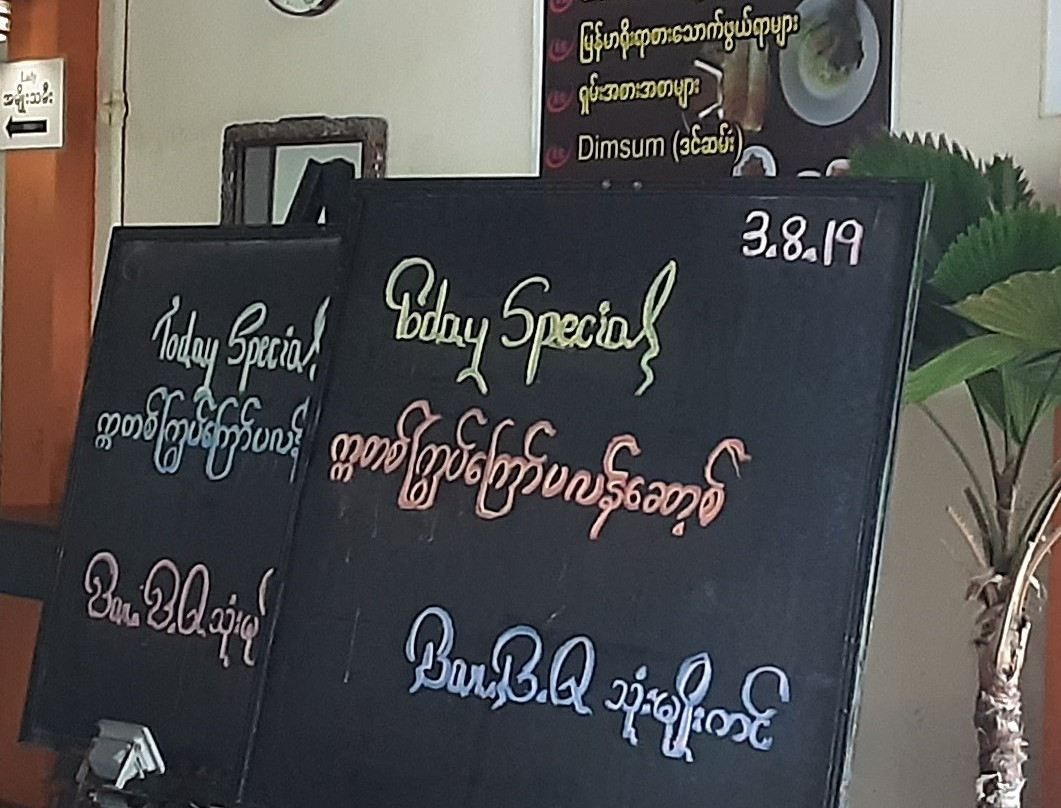 Lady
အမျိုးသမီး
မြန်မာရိုးရာစားသောက်ဖွယ်ရာများ
ရှမ်းအစားအစာများ
Dimsum (ဒင်ဆမ်း)
3.8.19
Today Special
ဣတစ်ကြွပ်ကြော်ပလန်ဆော့စ်
Bar.B.Q သုံးမျိုးကင်
Today Special
ဣတစ်ကြွပ်ကြော်ပလန်
Bar.B.Q သုံးမျ